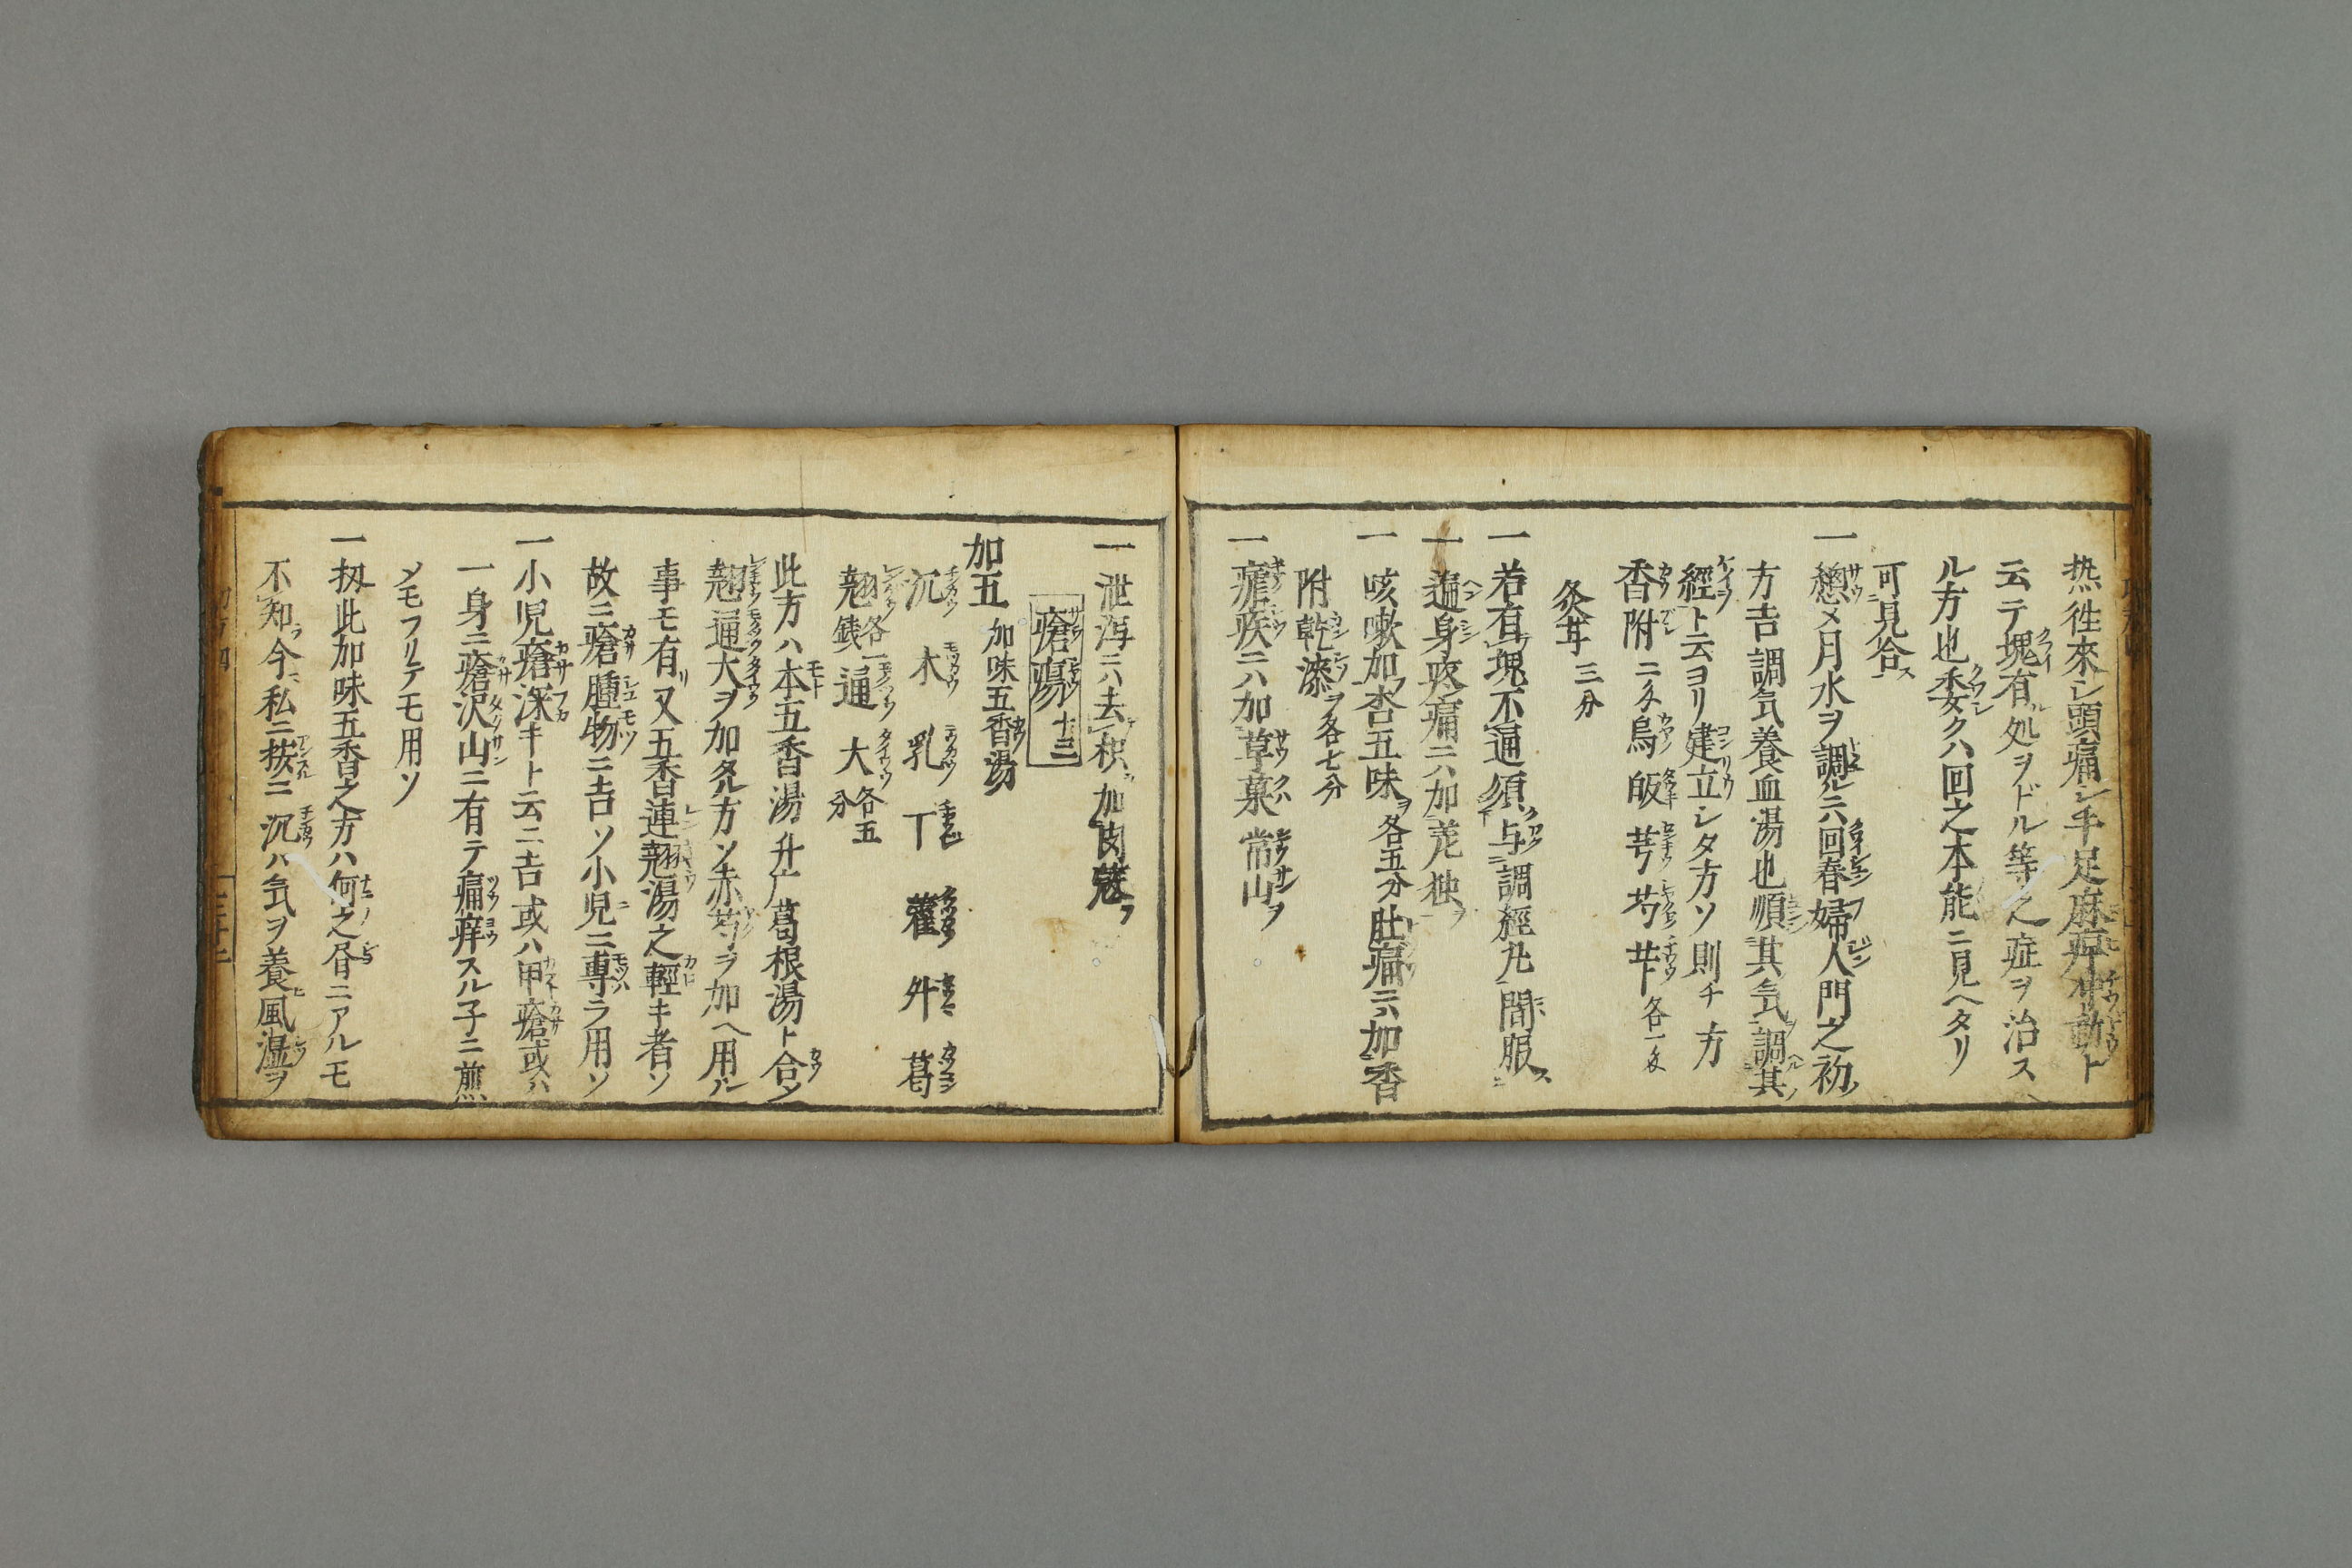 热徃來シ頭痛シ手足麻痺冲動ト
云テ塊有ル処ヲドル等之症ヲ治ス
ル方也委クハ回之本能ニ見ヘタリ
可見合ス
一 㹅〆月水ヲ調ルニハ回春婦人門之初ノ
方吉調気養血湯也順其気調其
經ト云ヨリ建立シタ方ソ則チ方
香附 烏 芎 芍 各一
灸甘 三分
一 若有塊不通須与調經丸間服ス
一 遍身疼痛ニハ加羌独ヲ
一 咳嗽加杏五味ヲ各五分肚痛ニハ加香
附乾漆ヲ各七分
一 瘧疾ニハ加草菓常山ヲ
一 泄泻ニハ去枳加肉蔲ヲ
瘡瘍 十三
加五 加味五香湯
沉 木 乳 丁 藿 升 葛
翹 各一銭 通 大 各五分
此方ハ本五香湯升广葛根湯ト合メ
翹通大ヲ加タル方ソ赤芍ヲ加ヘ用ル
事モ有リ又五香連翹湯之輕キ者ソ
故ニ瘡腫物ニ吉ソ小児ニ専ラ用ソ
一 小児瘡深キト云ニ吉或ハ甲瘡或ハ
一身ニ瘡沢山ニ有テ痛痒スル子ニ煎
メモフリテモ用ソ
一 扨此加味五香之方ハ何之昏ニアルモ
不知今私ニ按ニ沉ハ気ヲ養風湿ヲ